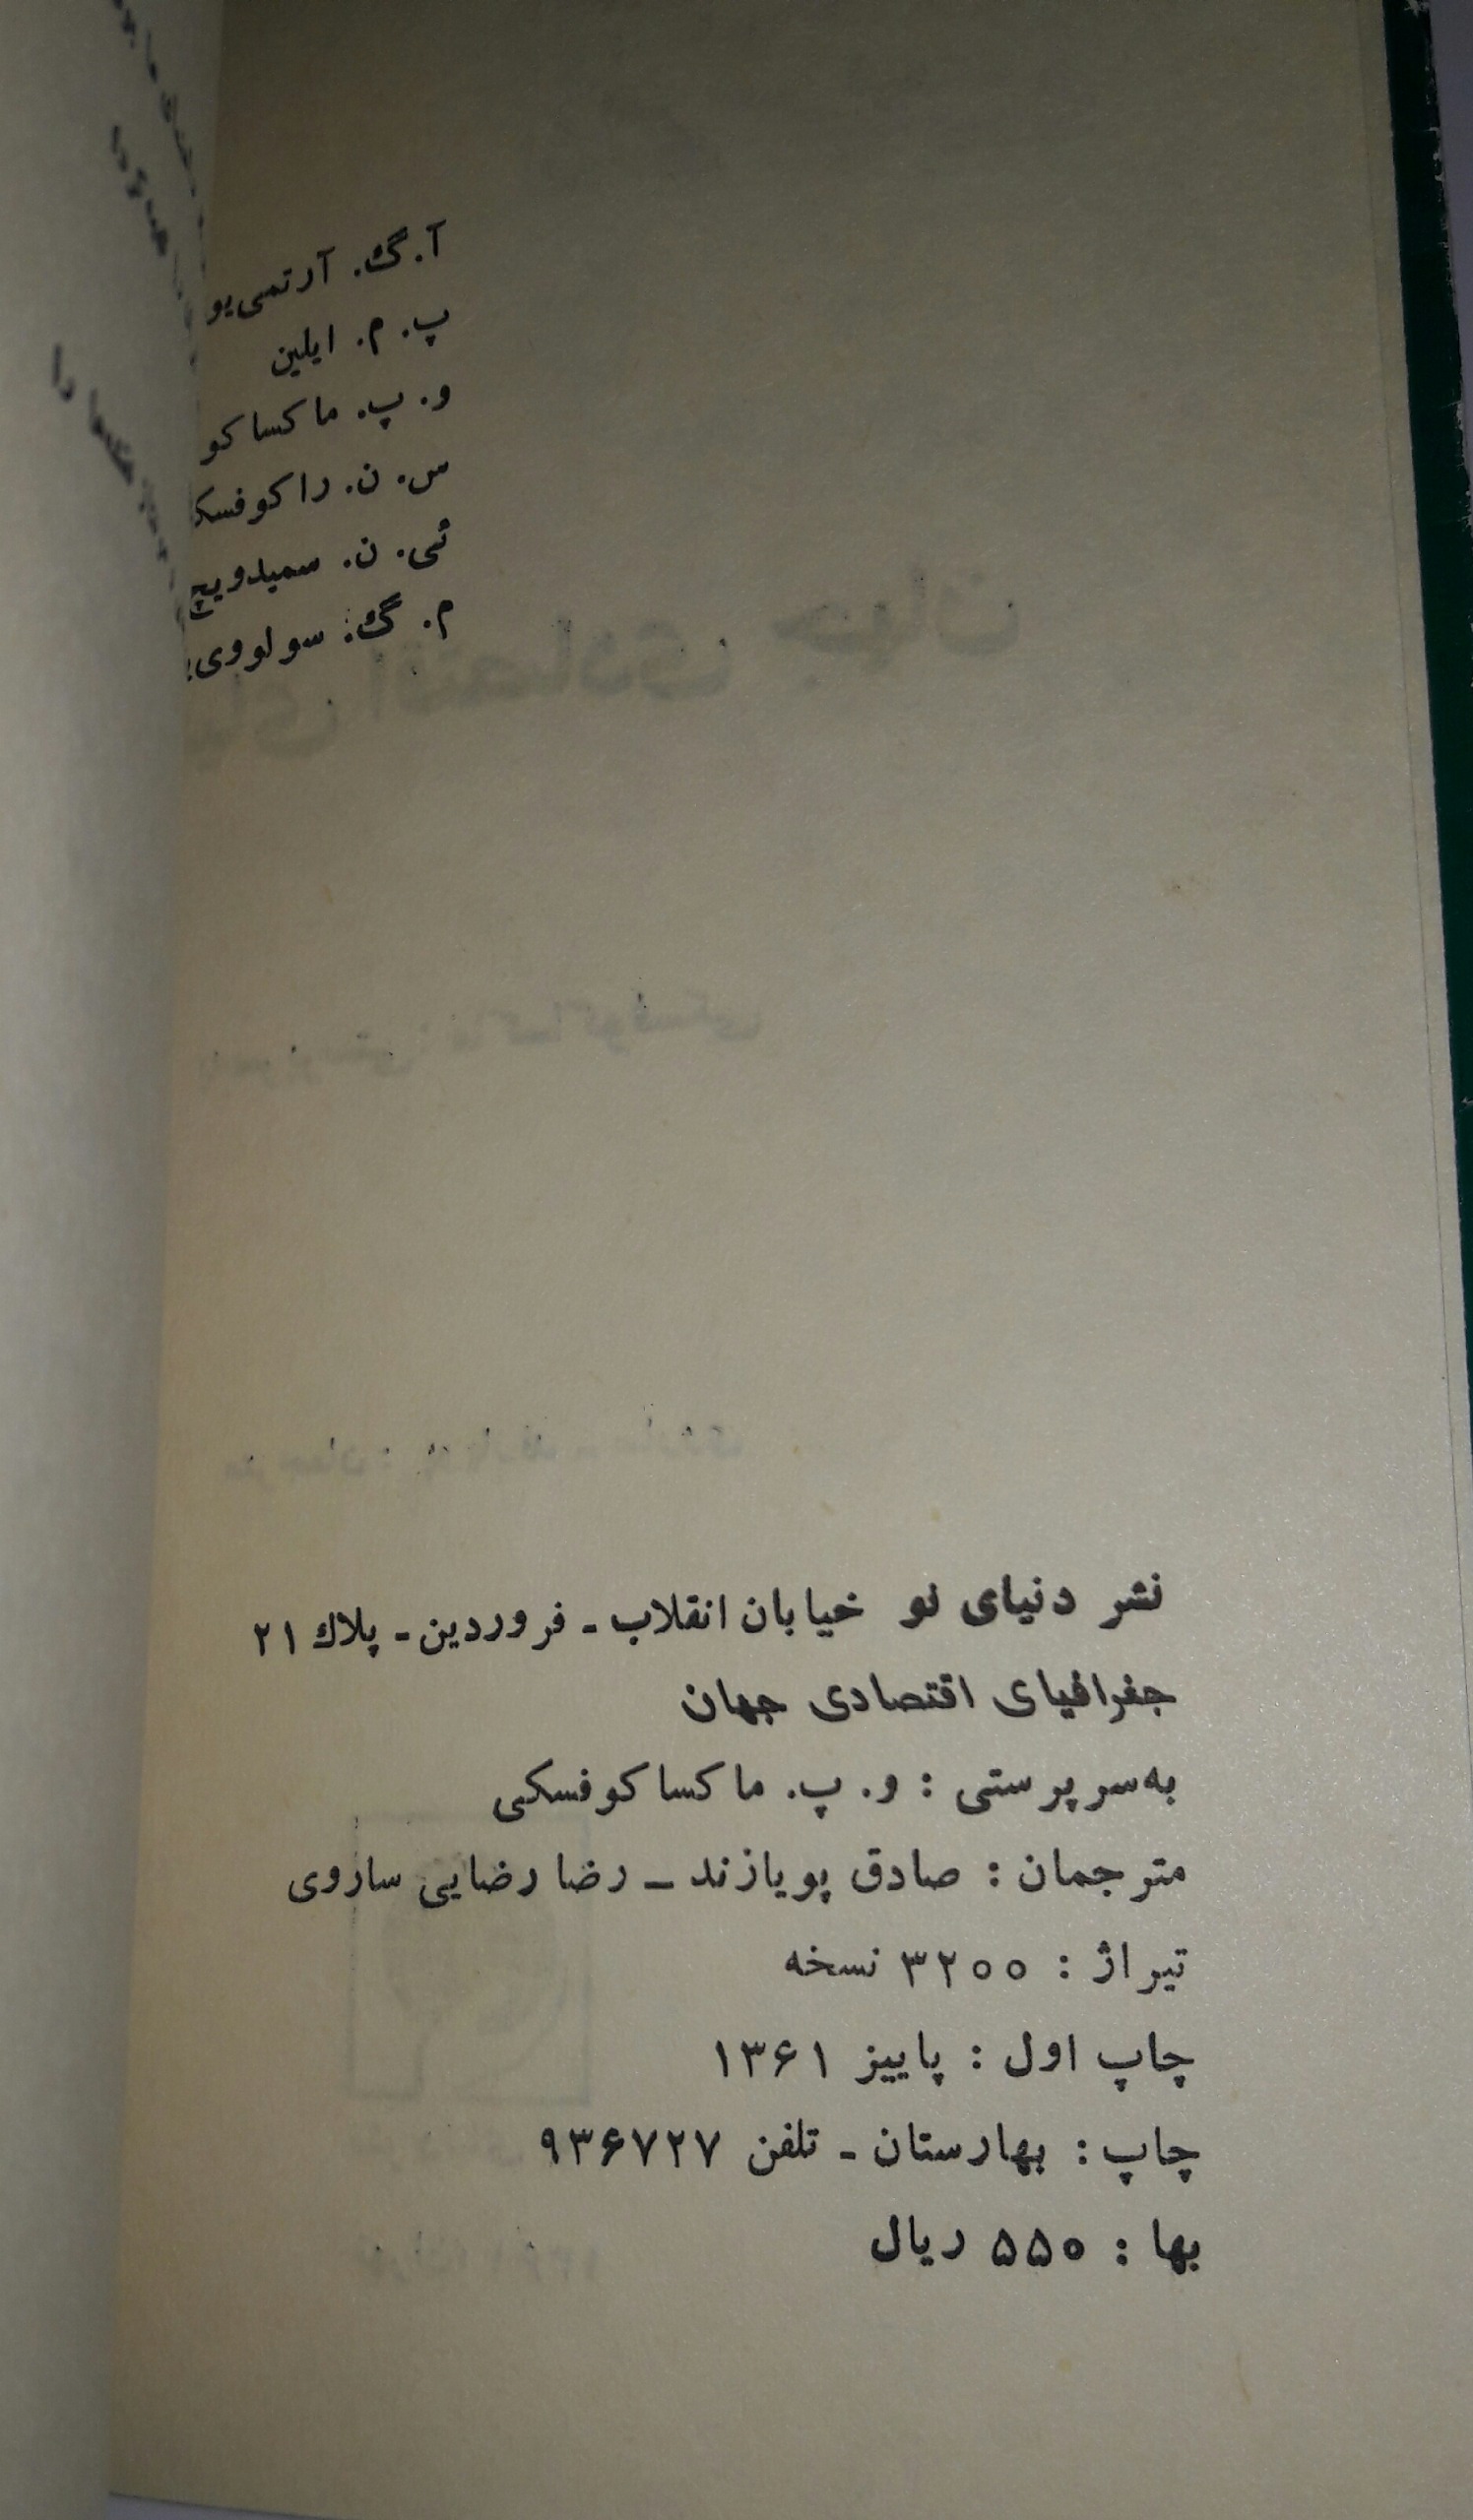 آ. گ. آرتمی‌یو
پ. م. ایلین
و. پ. ماکساکو
س. ن. راکوفسک
ئی. ن. سمیدویچ
م. گ. سولووی
نشر دنیای نو خیابان انقلاب - فروردین - پلاك ۲۱
جغرافیای اقتصادی جهان
به‌سرپرستی : و. پ. ماکساکوفسکی
مترجمان : صادق پویازند - رضا رضایی ساروی
تیراژ : ۳۲۰۰ نسخه
چاپ اول : پاییز ۱۳۶۱
چاپ : بهارستان - تلفن ۹۳۶۷۲۷
بها : ۵۵۰ ریال